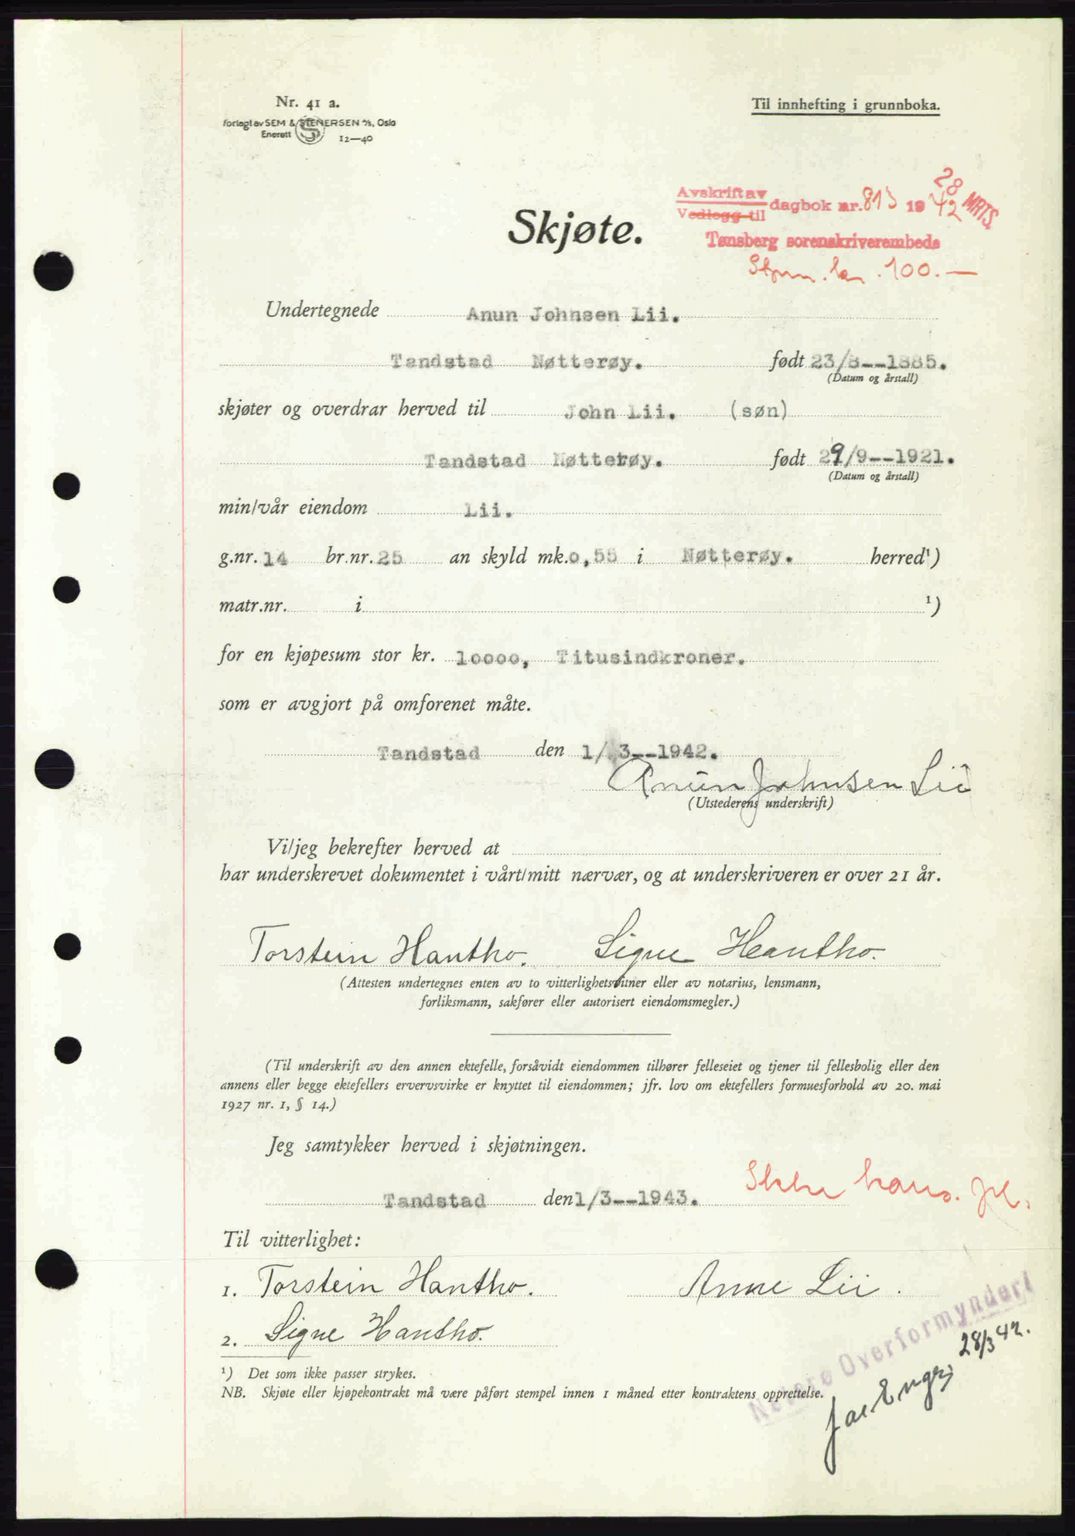 Nr. 41 a.
Forlagt av SEM & STENERSEN A/S, Oslo
Enerett
12—40
Til innhefting i grunnboka.
28 MRTS.
Avskrift av
Vedlegg til
dagbok nr. 813 1942
Tønsberg sorenskriverembede
100.—
Skjøte.
Undertegnede Anun Johnsen Lii.
Tandstad Nøtterøy. født 23/8--1885.
(Datum og årstall)
skjøter og overdrar herved til John Lii. (søn)
Tandstad Nøtterøy. født 29/9--1921.
(Datum og årstall)
min/vår eiendom Lii.
g.nr. 14 br.nr. 25 an skyld mk. 0,55 i Nøtterøy. herred¹)
matr.nr. i ¹)
for en kjøpesum stor kr. 10000, Titusindkroner.
som er avgjort på omforenet måte.
Tandstad den 1/3--1942.
Anun Johnsen Lii
(Utstederens underskrift)
Vi/jeg bekrefter herved at
har underskrevet dokumentet i vårt/mitt nærvær, og at underskriveren er over 21 år.
Torstein Hantho. Signe Hantho.
(Attesten undertegnes enten av to vitterlighetsvitner eller av notarius, lensmann,
forliksmann, sakfører eller autorisert eiendomsmegler.)
(Til underskrift av den annen ektefelle, forsåvidt eiendommen tilhører felleseiet og tjener til fellesbolig eller den
annens eller begge ektefellers ervervsvirke er knyttet til eiendommen; jfr. lov om ektefellers formuesforhold av 20. mai
1927 nr. 1, § 14.)
Jeg samtykker herved i skjøtningen.
Tandstad den 1/3--1943.
Til vitterlighet:
1. Torstein Hantho. Anne Lii.
2. Signe Hantho.
Overformynderi
28/3 42.
¹) Det som ikke passer strykes.
NB. Skjøte eller kjøpekontrakt må være påført stempel innen 1 måned etter kontraktens opprettelse.